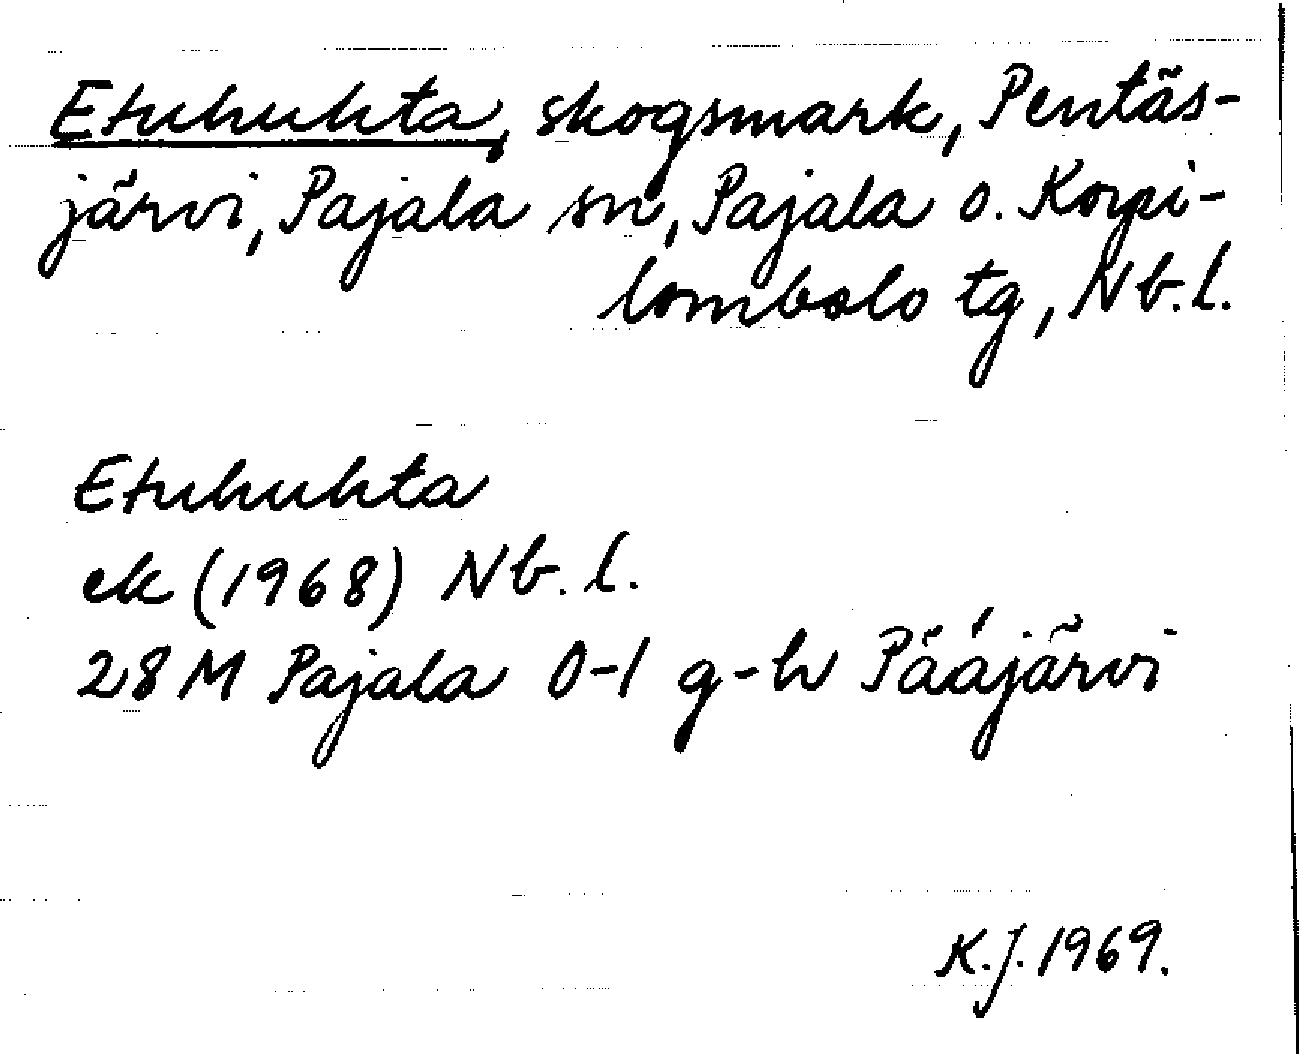 Etuhuhta, skogsmark, Pentäs-
järvi, Pajala sn, Pajala o. Korpi-
lombolo tg, Nb. l.
Etuhuhta
ek (1968) Nb. l.
28 M Pajala 0-1 g-h Pääjärvi
K.J. 1969.